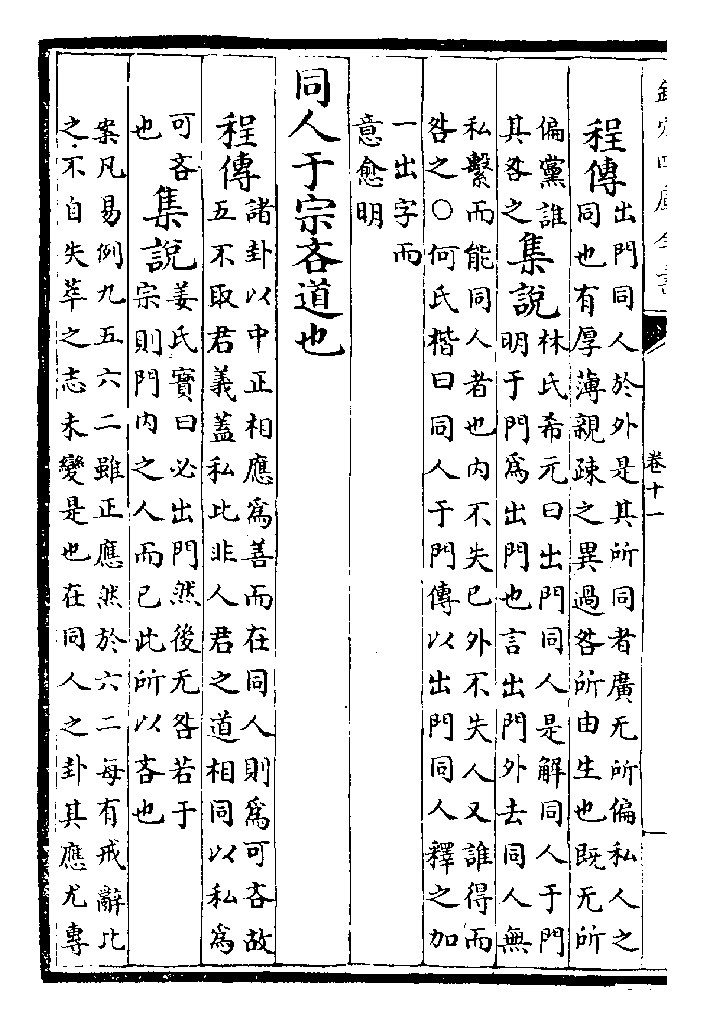 欽定四庫全書
卷十一
程傳出門同人於外是其所同者廣无所偏私人之
同也有厚薄親疎之異過咎所由生也既无所
偏黨誰
其咎之集說林氏希元曰出門同人是解同人于門
明于門為出門也言出門外去同人無
私繫而能同人者也内不失已外不失人又誰得而
咎之○何氏楷曰同人于門傳以出門同人釋之加
一出字而
意愈明
同人于宗吝道也
程傳諸卦以中正相應為善而在同人則為可吝故
五不取君義蓋私比非人君之道相同以私為
可吝
也集說姜氏寶曰必出門然後无咎若于
宗則門内之人而已此所以吝也
案凡易例九五六二雖正應然於六二每有戒辭比
之不自失萃之志未變是也在同人之卦其應尤專